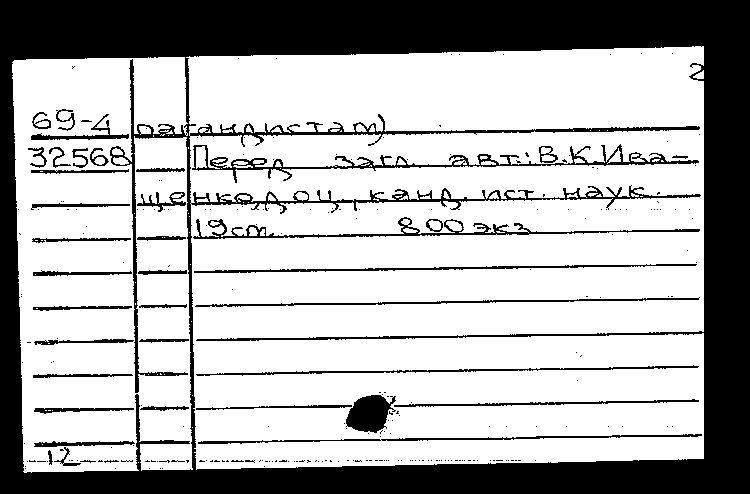 2
69-4 пагандистам)
32568 Перед загл. авт.: В.К.Ива=
щенко, доц., канд. ист. наук.
19см 800 экз
12